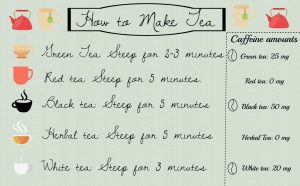 How to Make Tea
Caffeine amounts
Green Tea: Steep for 2-3 minutes
Green tea: 25 mg
Red tea: Steep for 5 minutes.
Red tea: 0 mg
Black tea: Steep for 5 minutes
Black tea: 50 mg
Herbal tea: Steep for 5 minutes
Herbal Tea: 0 mg
White tea: Steep for 3 minutes
White tea: 20 mg